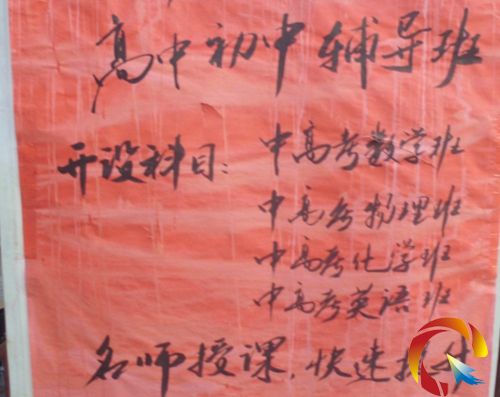 高中初中辅导班
开设科目：中高考数学班
中高考物理班
中高考化学班
中高考英语班
名师授课，快速提升